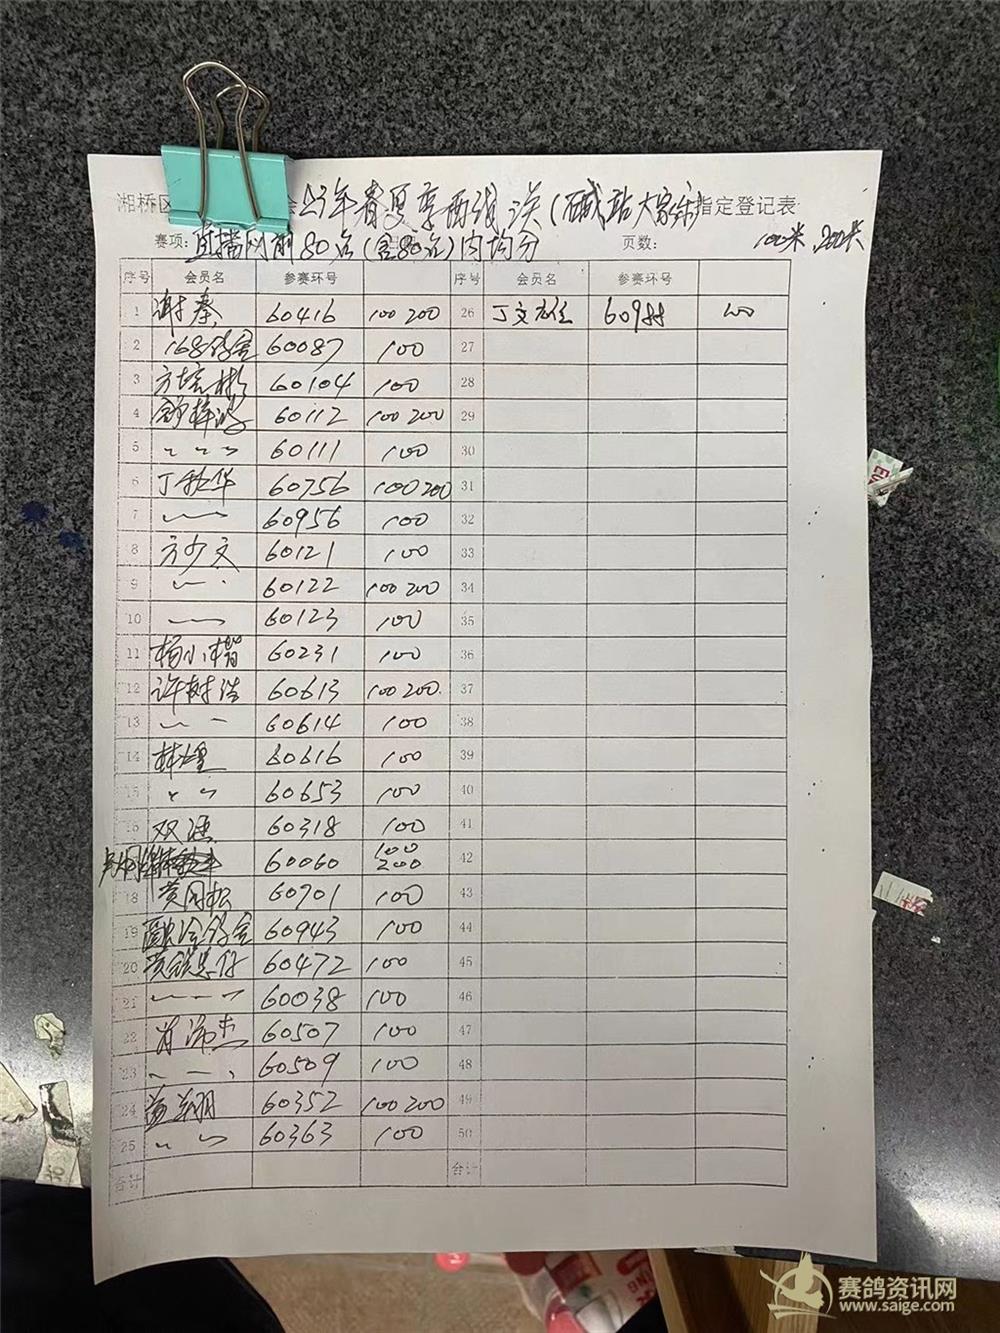 湘桥区 会 23年春夏季西线 关(咸站大客)指定登记表
赛项: 直播网前80名(含80名)内均分 页数: 100米, 200米
序号 会员名 参赛环号 序号 会员名 参赛环号
1 谢泰 60416 100 200 26 丁文 609 100
2 168鸽舍 60087 100 27
3 方培彬 60104 100 28
4 60112 100 200 29
5 〃 60111 100 30
6 丁秋华 60756 100 200 31
7 〃 60956 100 32
8 方少文 60121 100 33
9 〃 60122 100 200 34
10 〃 60123 100 35
11 杨小楷 60231 100 36
12 许树浩 60613 100 200 37
13 〃 60614 100 38
14 林煌 60616 100 39
15 〃 60653 100 40
16 双 60318 100 41
60060 100 200 42
18 黄同松 60701 100 43
19 鸽舍 60943 100 44
20 黄 60472 100 45
21 〃 60038 100 46
22 肖沛杰 60507 100 47
23 〃 60509 100 48
24 翔 60352 100 200 49
25 〃 60363 100 50
合计 合计
赛鸽资讯网
www.saige.com